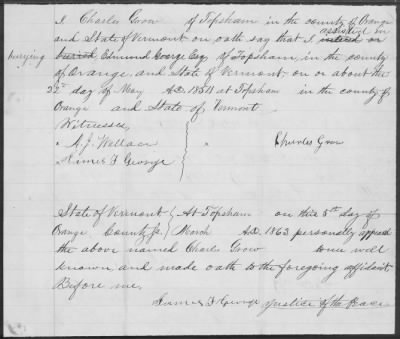 I Charles Grow of Topsham in the county of Orange
and State of Vermont on oath say that I assisted in
burying buried Edmund George Esq of Topsham in the county
of Orange, and State of Vermont on or about the
22d day of May A.D. 1851 at Topsham in the county of
Orange and State of Vermont
Witnesses
" A. J. Wallace " Charles Grow
" James F George
State of Vermont } At Topsham on this 5th day of
Orange County ss. } March A.D. 1863 personally appeared
the above named Charles Grow to me well
known and made oath to the foregoing affidavit
Before me,
James F George Justice of the Peace